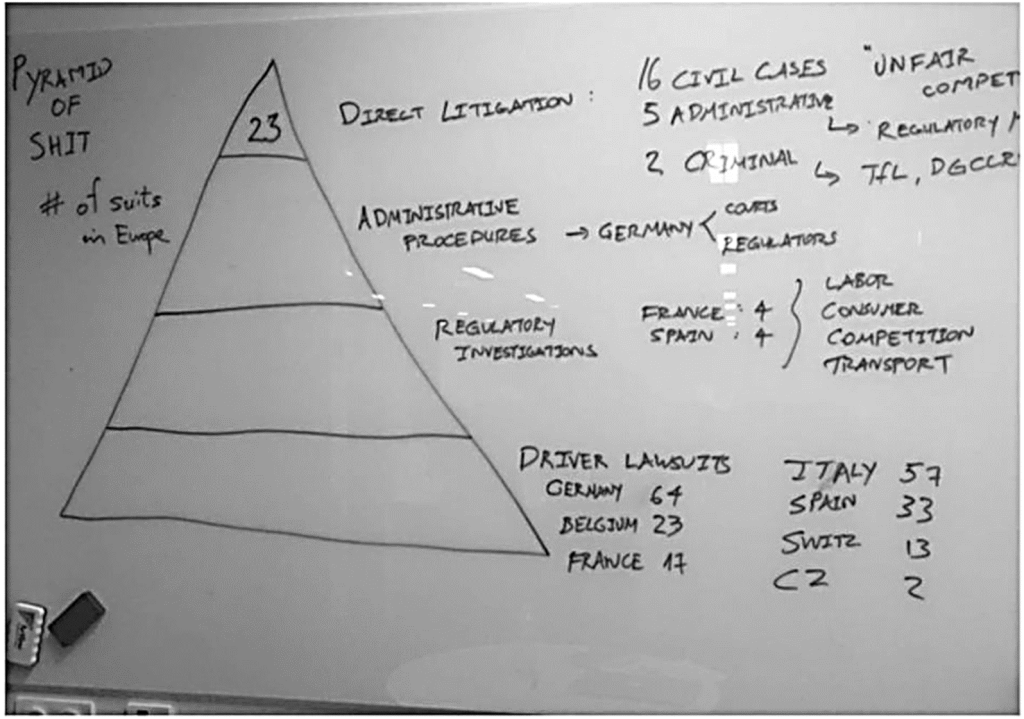 PYRAMID
OF
SHIT
# of suits
in Europe
23
DIRECT LITIGATION :
16 CIVIL CASES "UNFAIR
COMPET
5 ADMINISTRATIVE
↳ REGULATORY /
2 CRIMINAL ↳ TfL, DGCCR
ADMINISTRATIVE
PROCEDURES → GERMANY < COURTS
REGULATORS
REGULATORY
INVESTIGATIONS
FRANCE : 4
SPAIN : 4
LABOR
CONSUMER
COMPETITION
TRANSPORT
DRIVER LAWSUITS
GERMANY 64
BELGIUM 23
FRANCE 17
ITALY 57
SPAIN 33
SWITZ 13
CZ 2